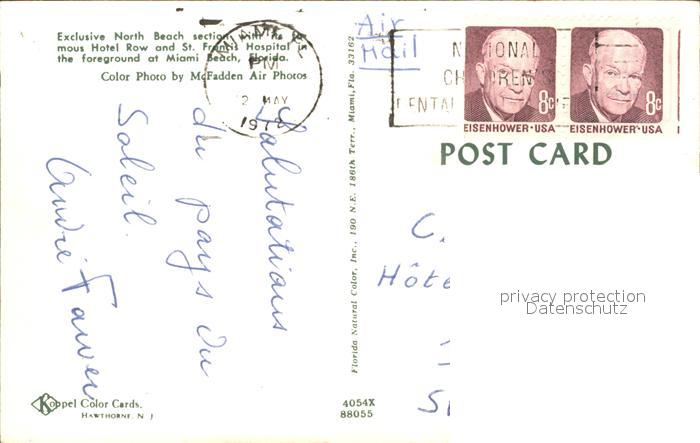 Exclusive North Beach section with its fa-
mous Hotel Row and St. Francis Hospital in
the foreground at Miami Beach, Florida.
Color Photo by McFadden Air Photos
MIAMI, F
PM
2 MAY
Salutations
du pays du
Soleil.
André
Koppel Color Cards.
HAWTHORNE, N J
Florida Natural Color, Inc., 190 N.E. 186th Terr., Miami, Fla. 33162
4054X
88055
Air
Mail
NATIONAL
CHILDREN'S
DENTAL
8c
EISENHOWER·USA
8c
EISENHOWER·USA
POST CARD
C.
Hôte
privacy protection
Datenschutz